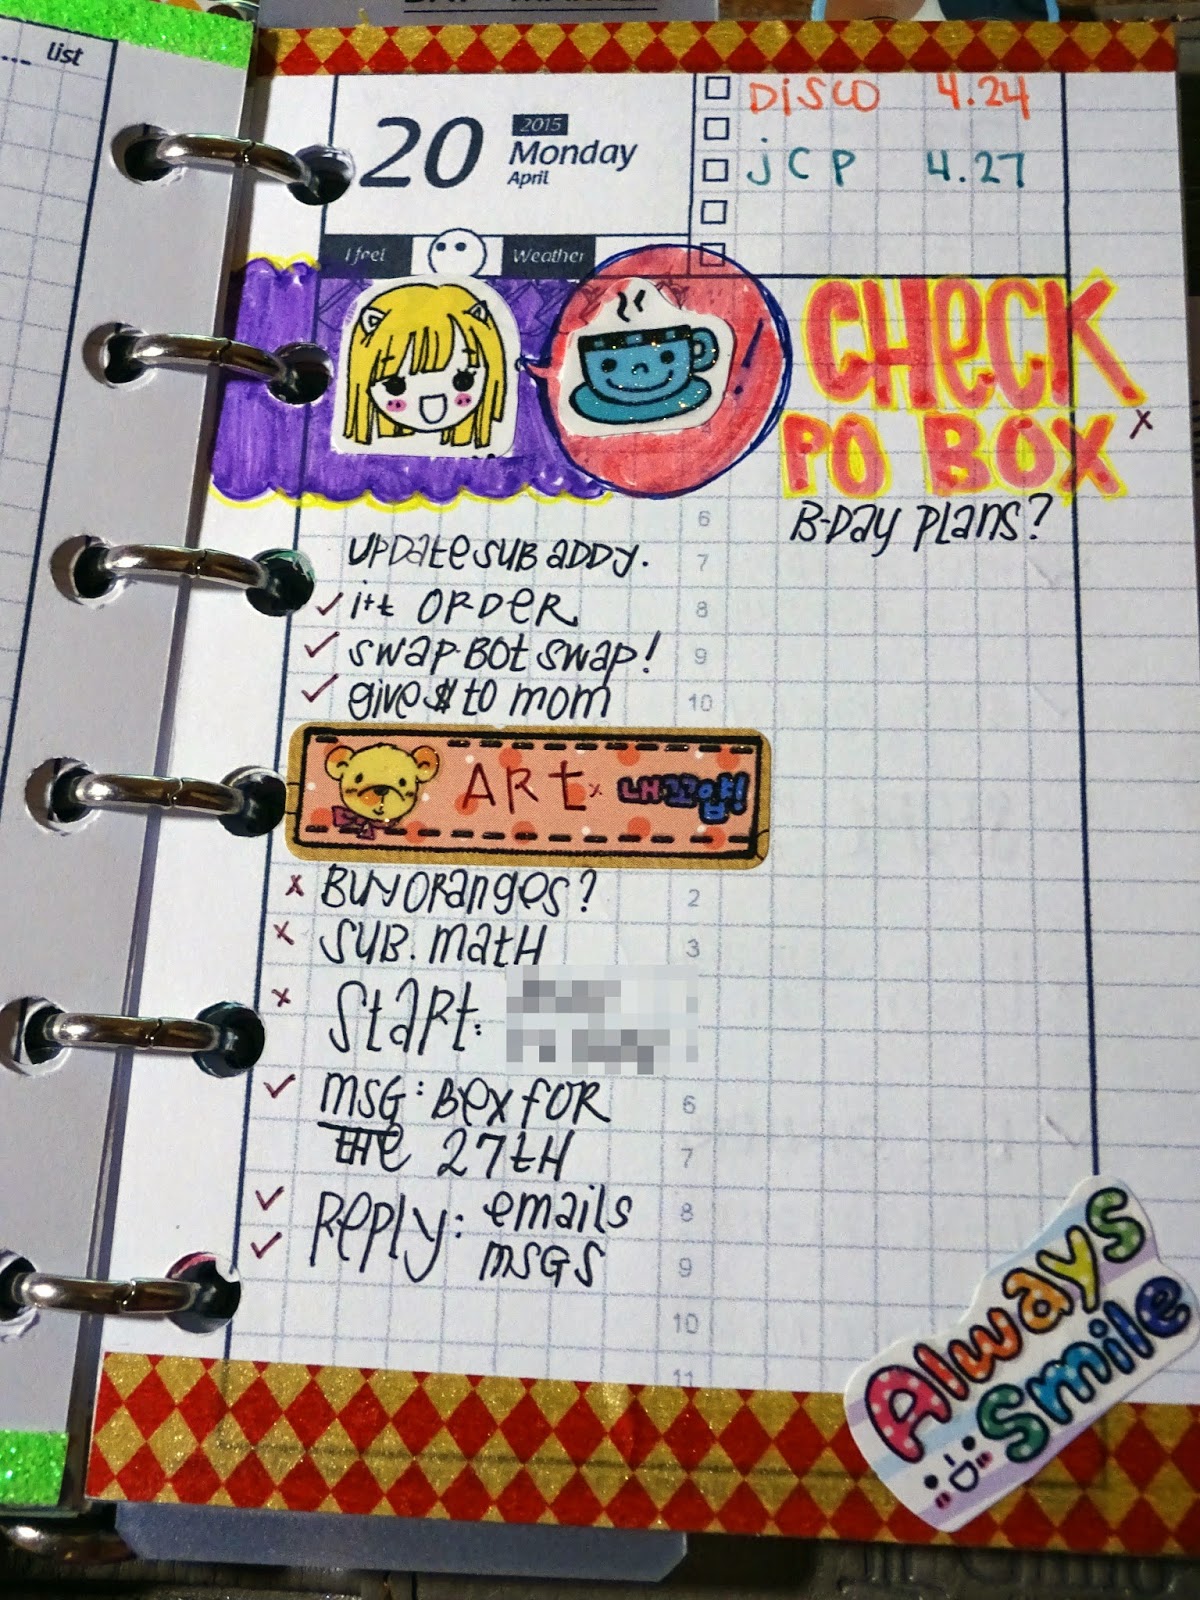 ... list
20
2015
Monday
April
DISCO 4.24
JCP 4.27
I feel
Weather
CHECK
PO BOX x
B-Day Plans?
6
update sub addy.
7
✓ itt order
8
✓ swap-bot swap!
9
✓ give $ to mom
10
ART x 내꼬얍!
x Buy oranges?
2
x sub. math
3
x Start:
✓ msg: Bex for
6
the 27th
7
✓ Reply: emails
8
✓ msgs
9
10
11
Always
Smile